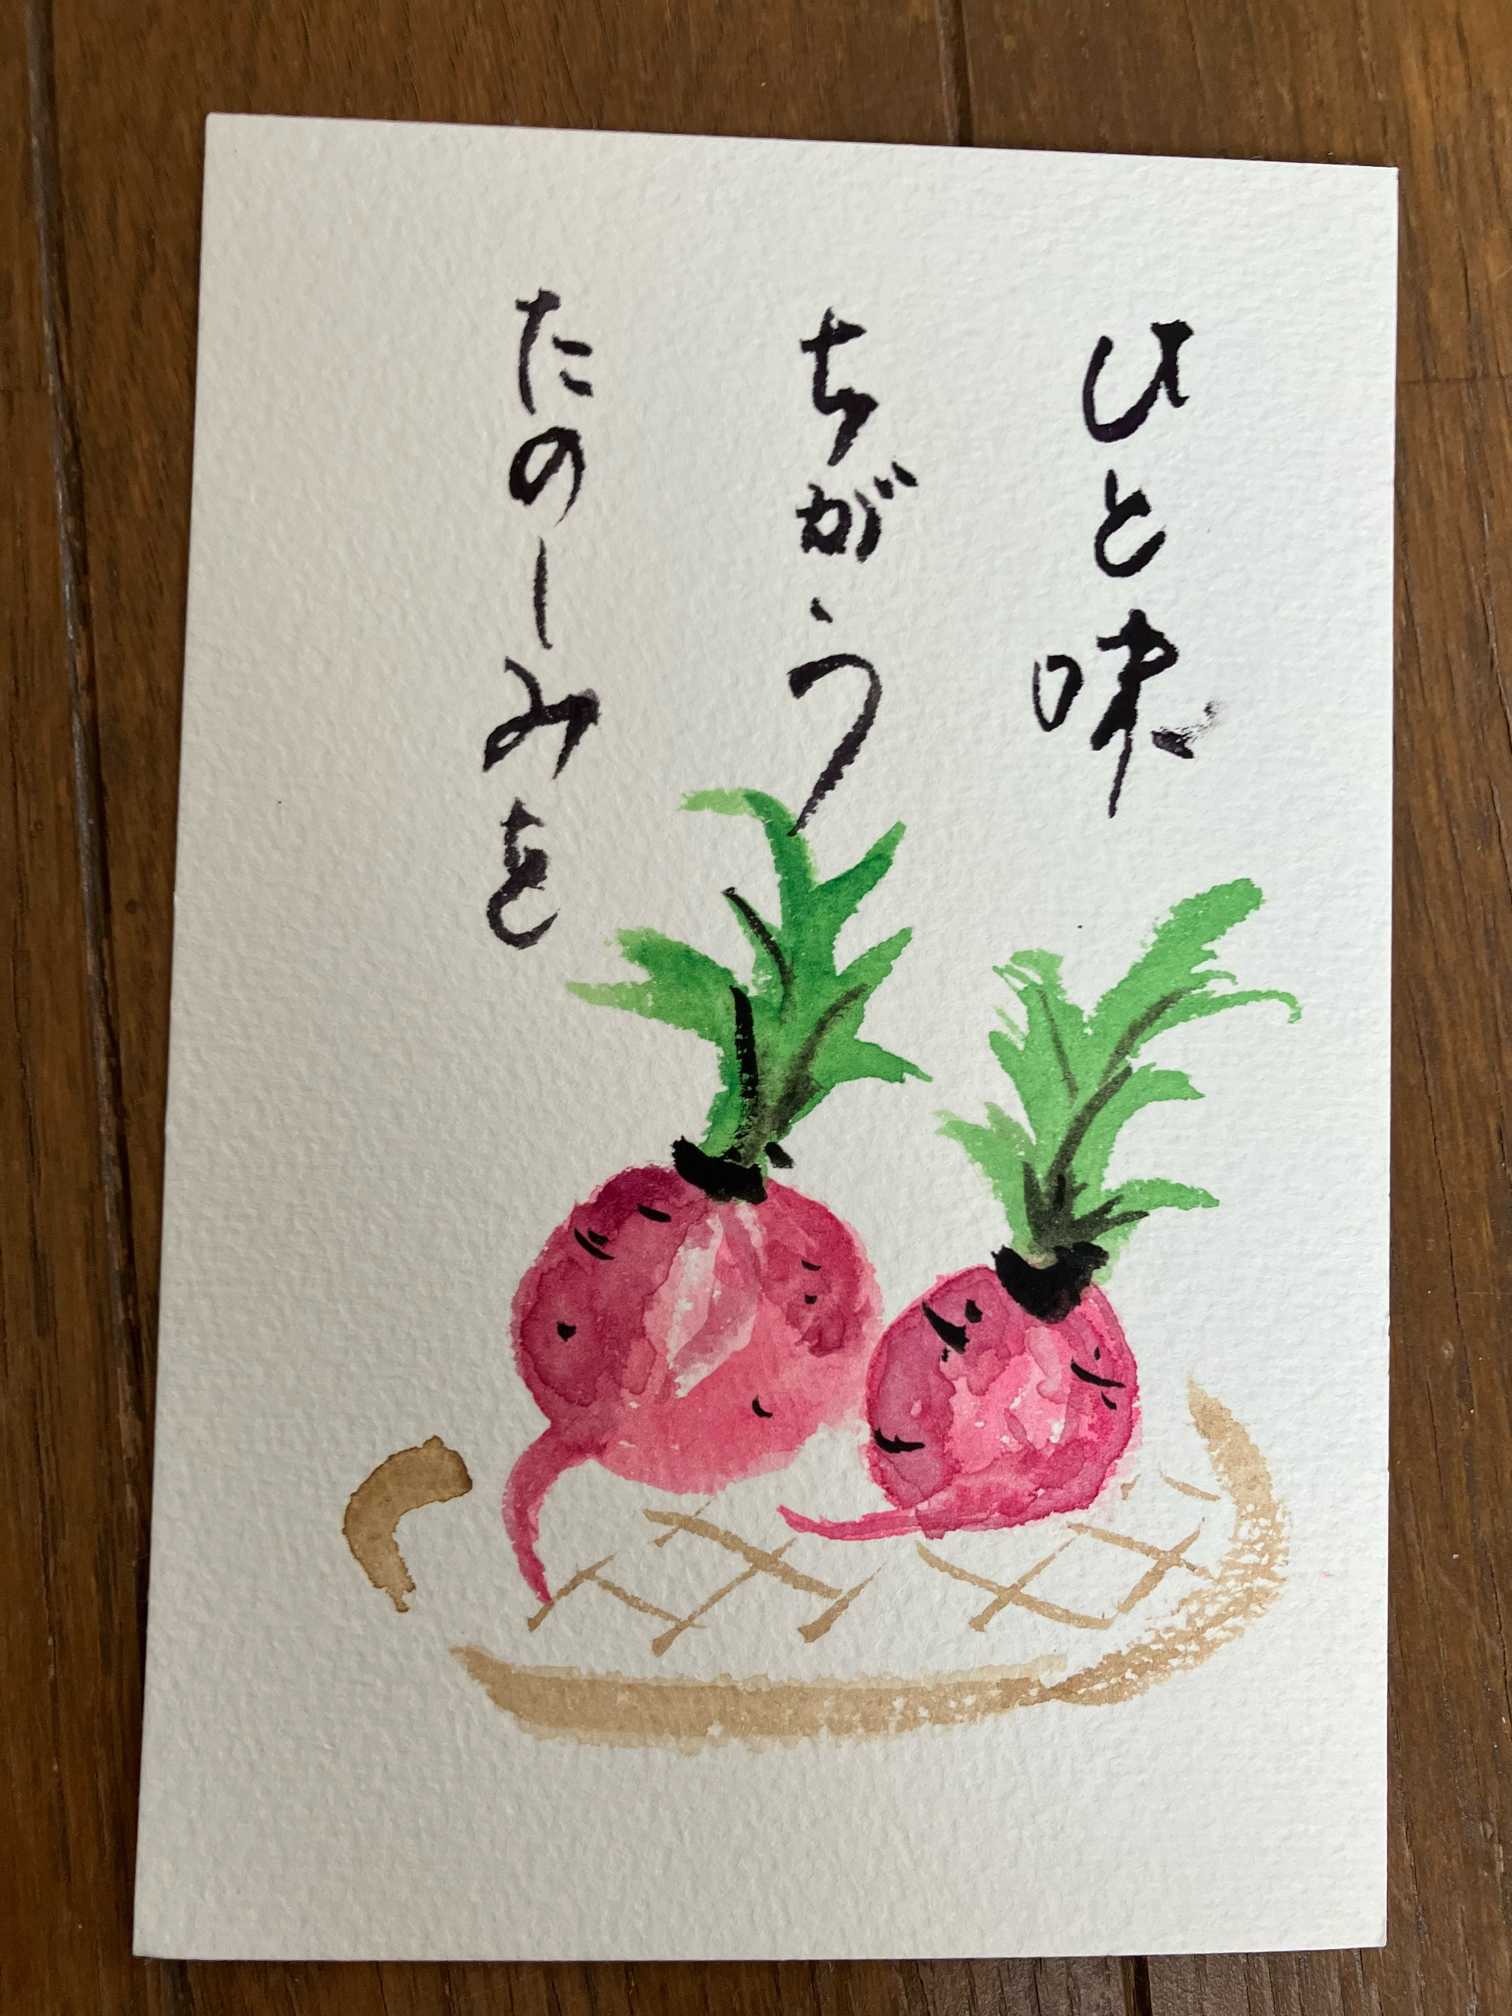 ひと味
ちがう
たのしみを